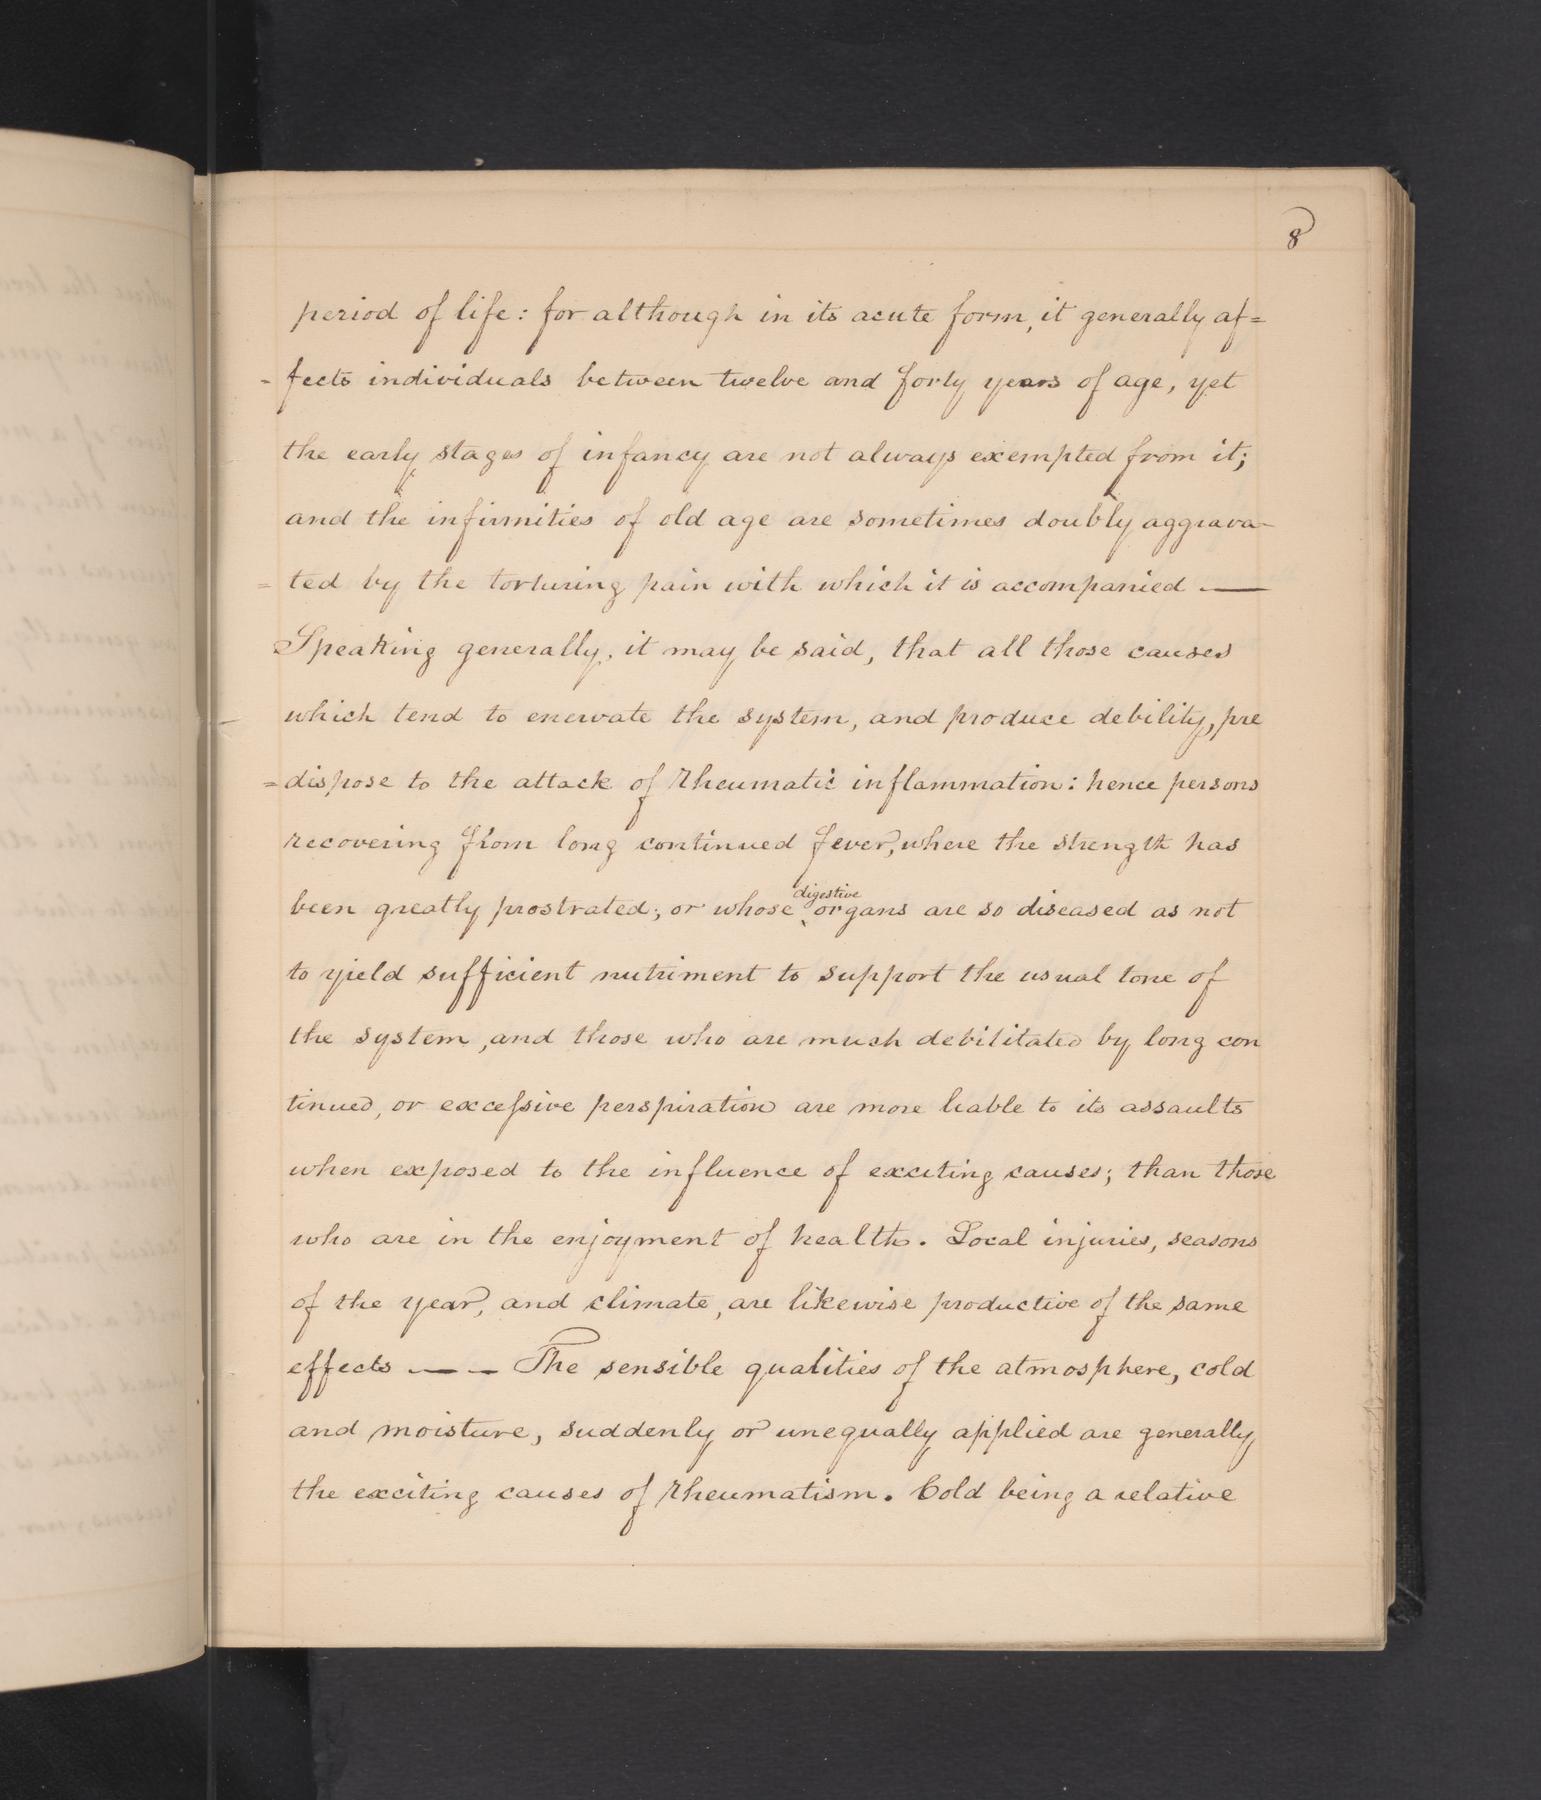 8
period of life: for although in its acute form, it generally af=
=fects individuals between twelve and forty years of age, yet
the early stages of infancy are not always exempted from it;
and the infirmities of old age are sometimes doubly aggrava-
=ted by the torturing pain with which it is accompanied —
Speaking generally, it may be said, that all those causes
which tend to enervate the system, and produce debility, pre
=dispose to the attack of rheumatic inflammation: hence persons
recovering from long continued fever, where the strength has
digestive
been greatly prostrated; or whose organs are so diseased as not
to yield sufficient nutriment to support the usual tone of
the system, and those who are much debilitated by long con
tinued, or excessive perspiration are more liable to its assaults
when exposed to the influence of exciting causes; than those
who are in the enjoyment of health. Local injuries, seasons
of the year, and climate, are likewise productive of the same
effects — — The sensible qualities of the atmosphere, cold
and moisture, suddenly or unequally applied are generally
the exciting causes of rheumatism. Cold being a relative